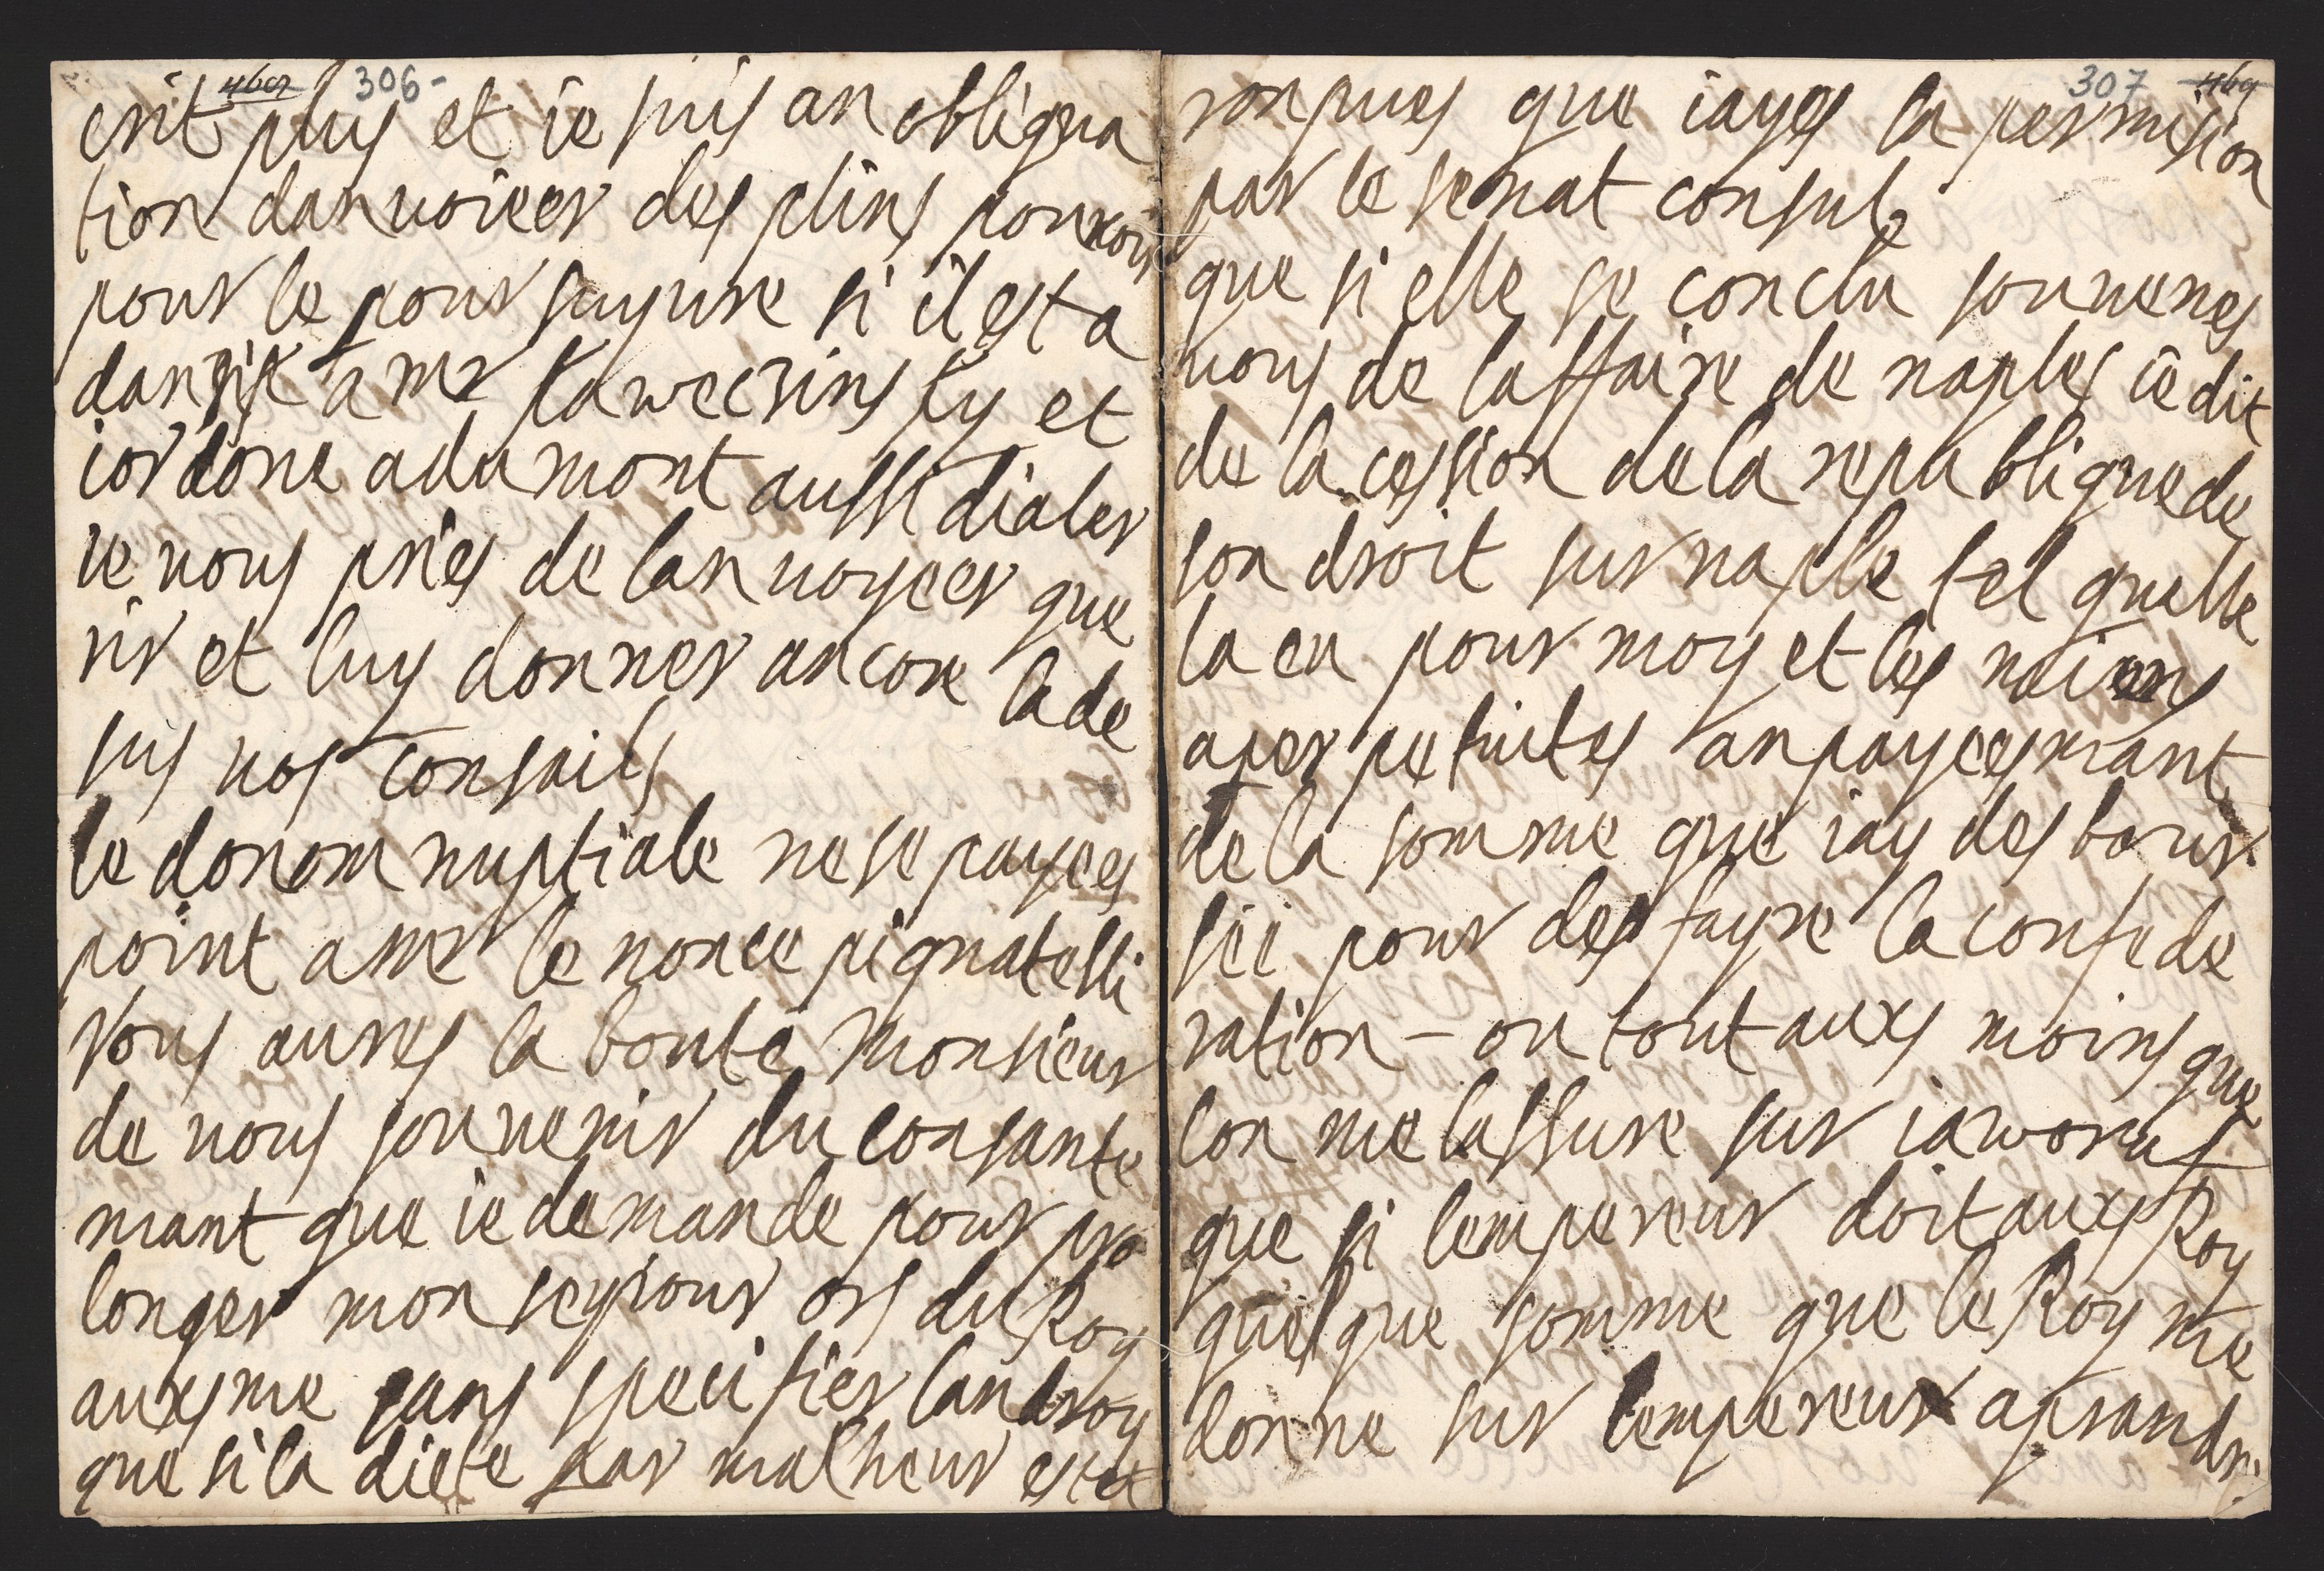 460 306-
crit plus et ie suis an obligua
tion danuoieer des plins pouuoir
pour le pour suyure si il est a
dansik a mr lawecrinsky et
iordone a dumont aussi dialer
ie uous pries de lanuoyeer que
rir et luy donner ancore lade
sus uos consails
le donom nuptiale ne se payees
point a mr le nonce pignatelli
Vous aures la bonte Monsieur
de uous souuenir du consante
mant que ie demande pour pro
longer mon seyiour ors du Roy
auxsme sans specifier landroy
que si la diete par malheur esta
307 469
ronpues que iayes la permision
par le senat consult
que si elle se conclu souuenes
uous de laffaire de naples ie dit
de la cession de la republique de
son droit sur naple tel quelle
la eu pour moy et les miens
a perpetuites an payeesmant
de la somme que iay des bour
sei pour desfayre la confede
ration - ou tout auxs moins que
lon me lassure sur iaworuf
que si lempereur doit auxs Roy
quelque somme que le Roy me
donne sur lempereur aprandr